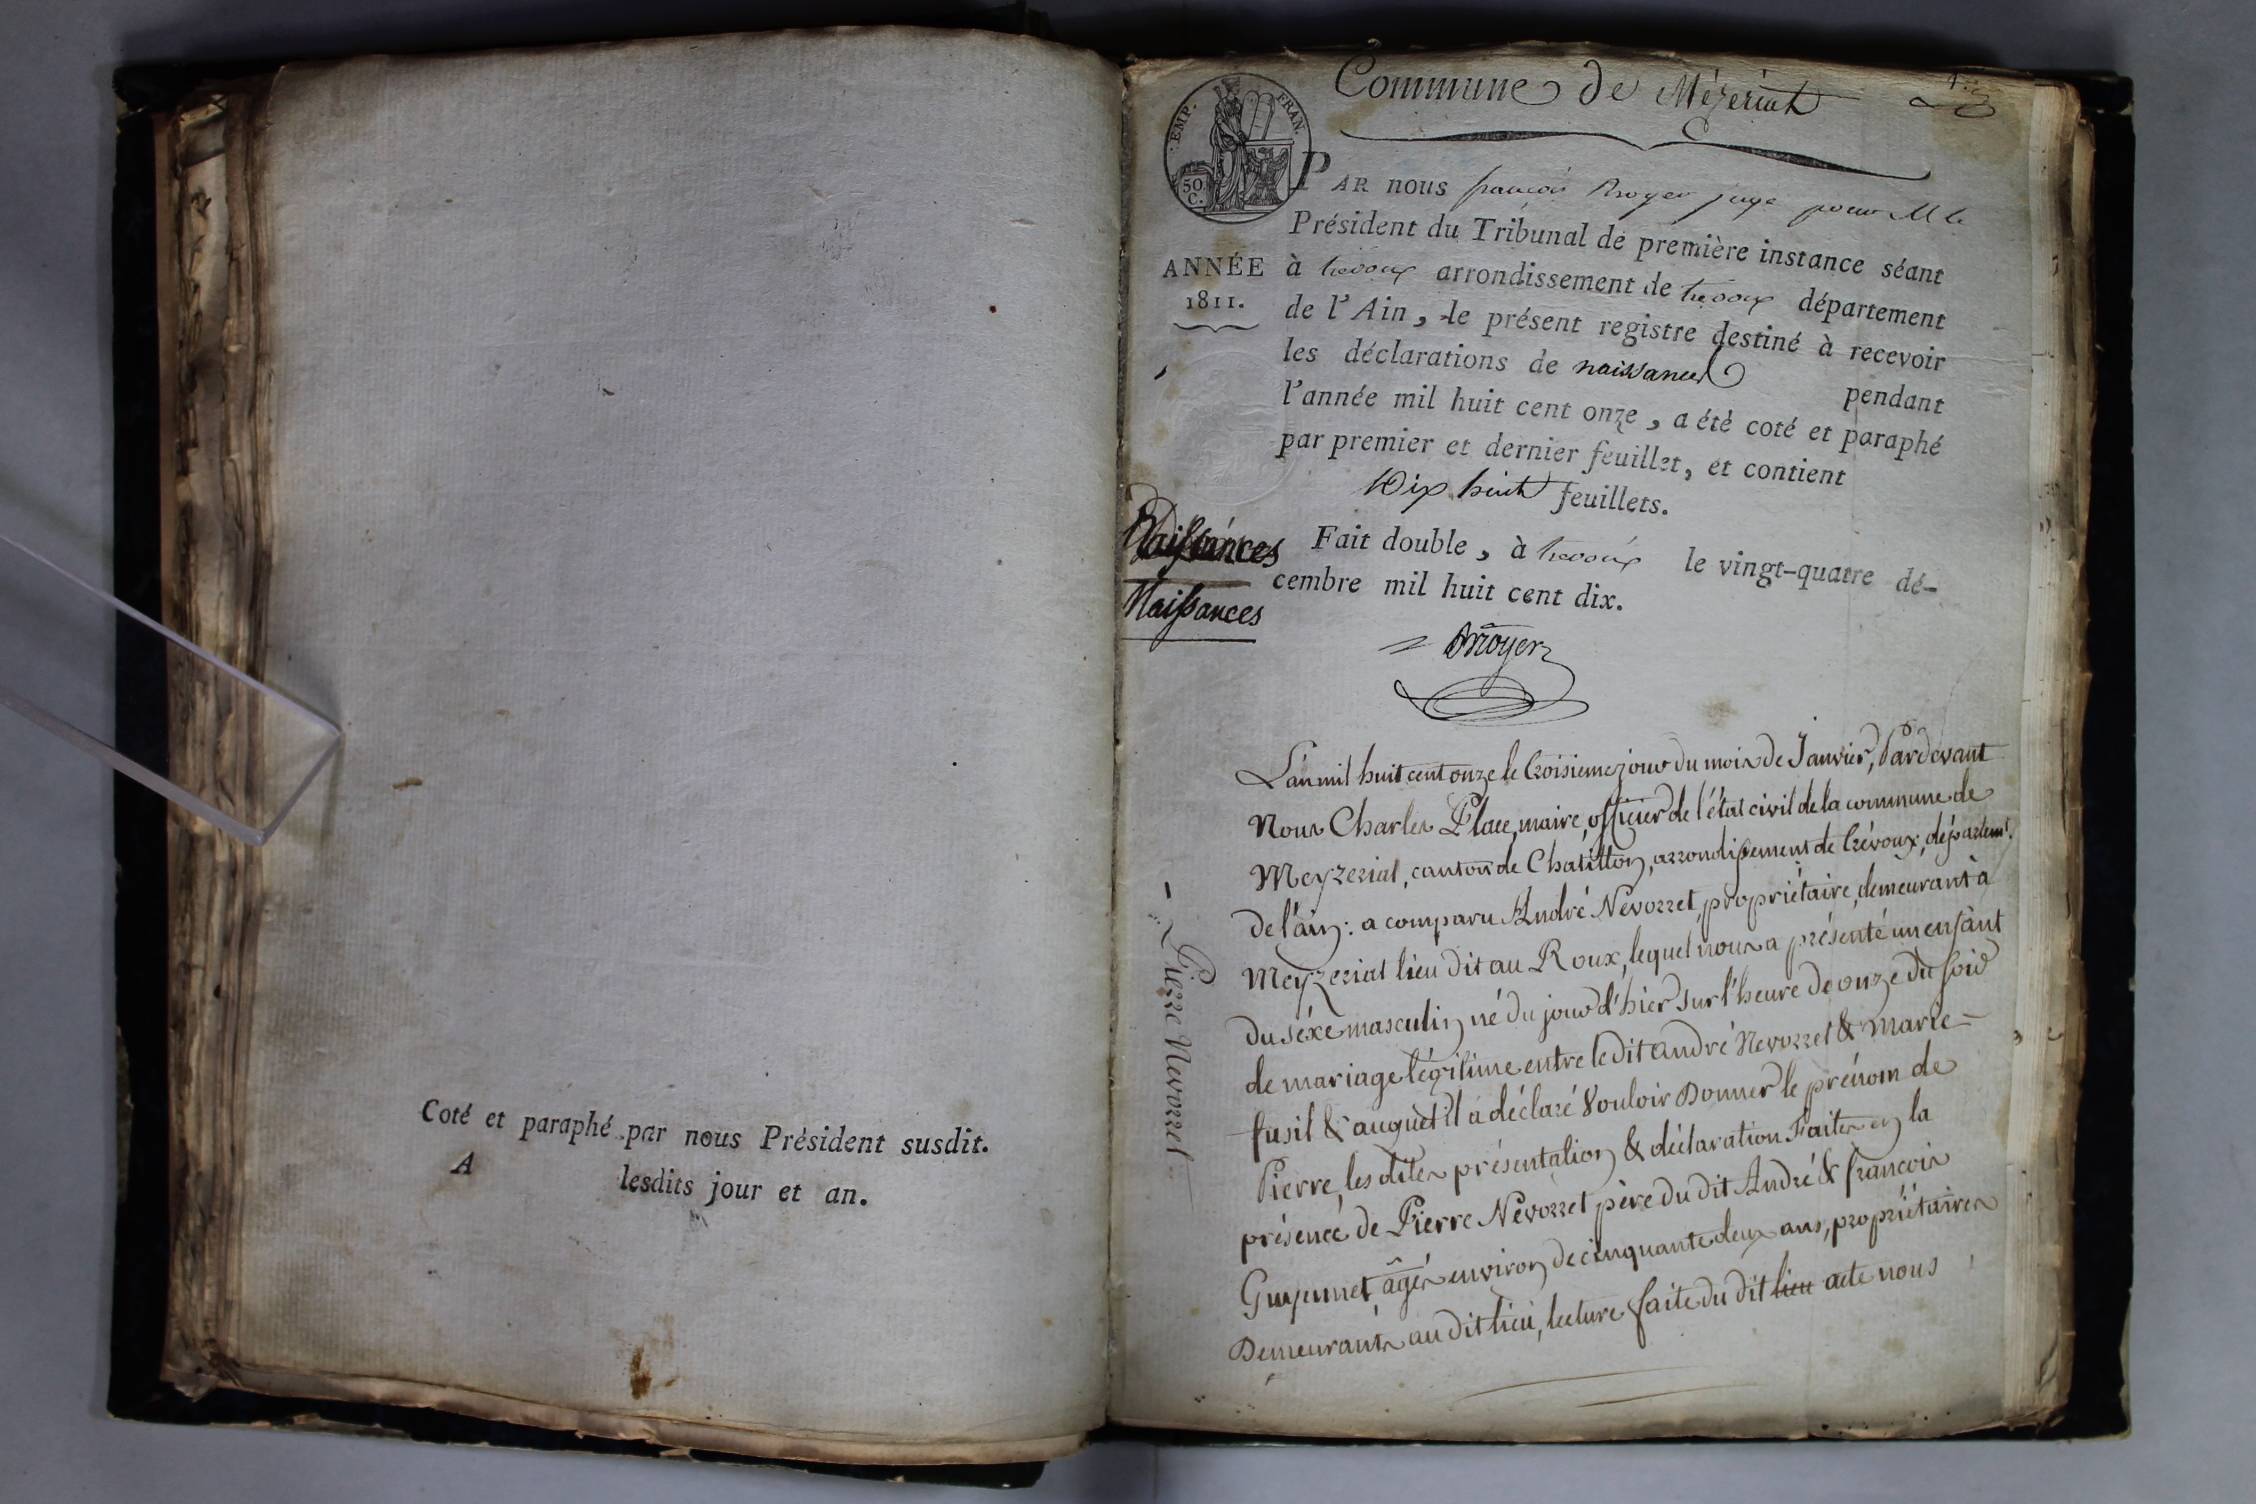 Coté et paraphé par nous Président susdit.
A lesdits jour et an.
Commune de Mézériat
1er
EMP. FRAN.
50 C.
PAR nous françois Broyer juge pour M le
Président du Tribunal de première instance séant
ANNÉE
1811.
à trevoux arrondissement de trevoux département
de l'Ain, le présent registre destiné à recevoir
les déclarations de naissances pendant
l'année mil huit cent onze, a été coté et paraphé
par premier et dernier feuillet, et contient
Dix huit feuillets.
Naissances
Naissances
Fait double, à trevoux le vingt-quatre dé-
cembre mil huit cent dix.
Broyer
L'an mil huit cent onze le troisieme jour du mois de Janvier, Pardevant
Nous Charles Place, maire, officier de l'état civil de la commune de
Meyzeriat, canton de Chatillon, arrondissement de trévoux, département.
de l'ain : a comparu André Nevorret, propriétaire, demeurant à
Meyzeriat lieu dit au Roux, lequel nous a présenté un enfant
du séxe masculin né du jour d'hier sur l'heure de onze du soir
de mariage légitime entre le dit andré Nevorret & marie
fusil & auquel il a déclaré vouloir Donner le prénom de
Pierre, les dites présentation & déclaration Faites en la
présence de Pierre Nevorret père du dit André & francois
Guyennet, âgés environ de cinquante deux ans, propriétaires
Demeurants au dit lieu, lecture faite du dit lieu acte nous
Pierre Nevorret